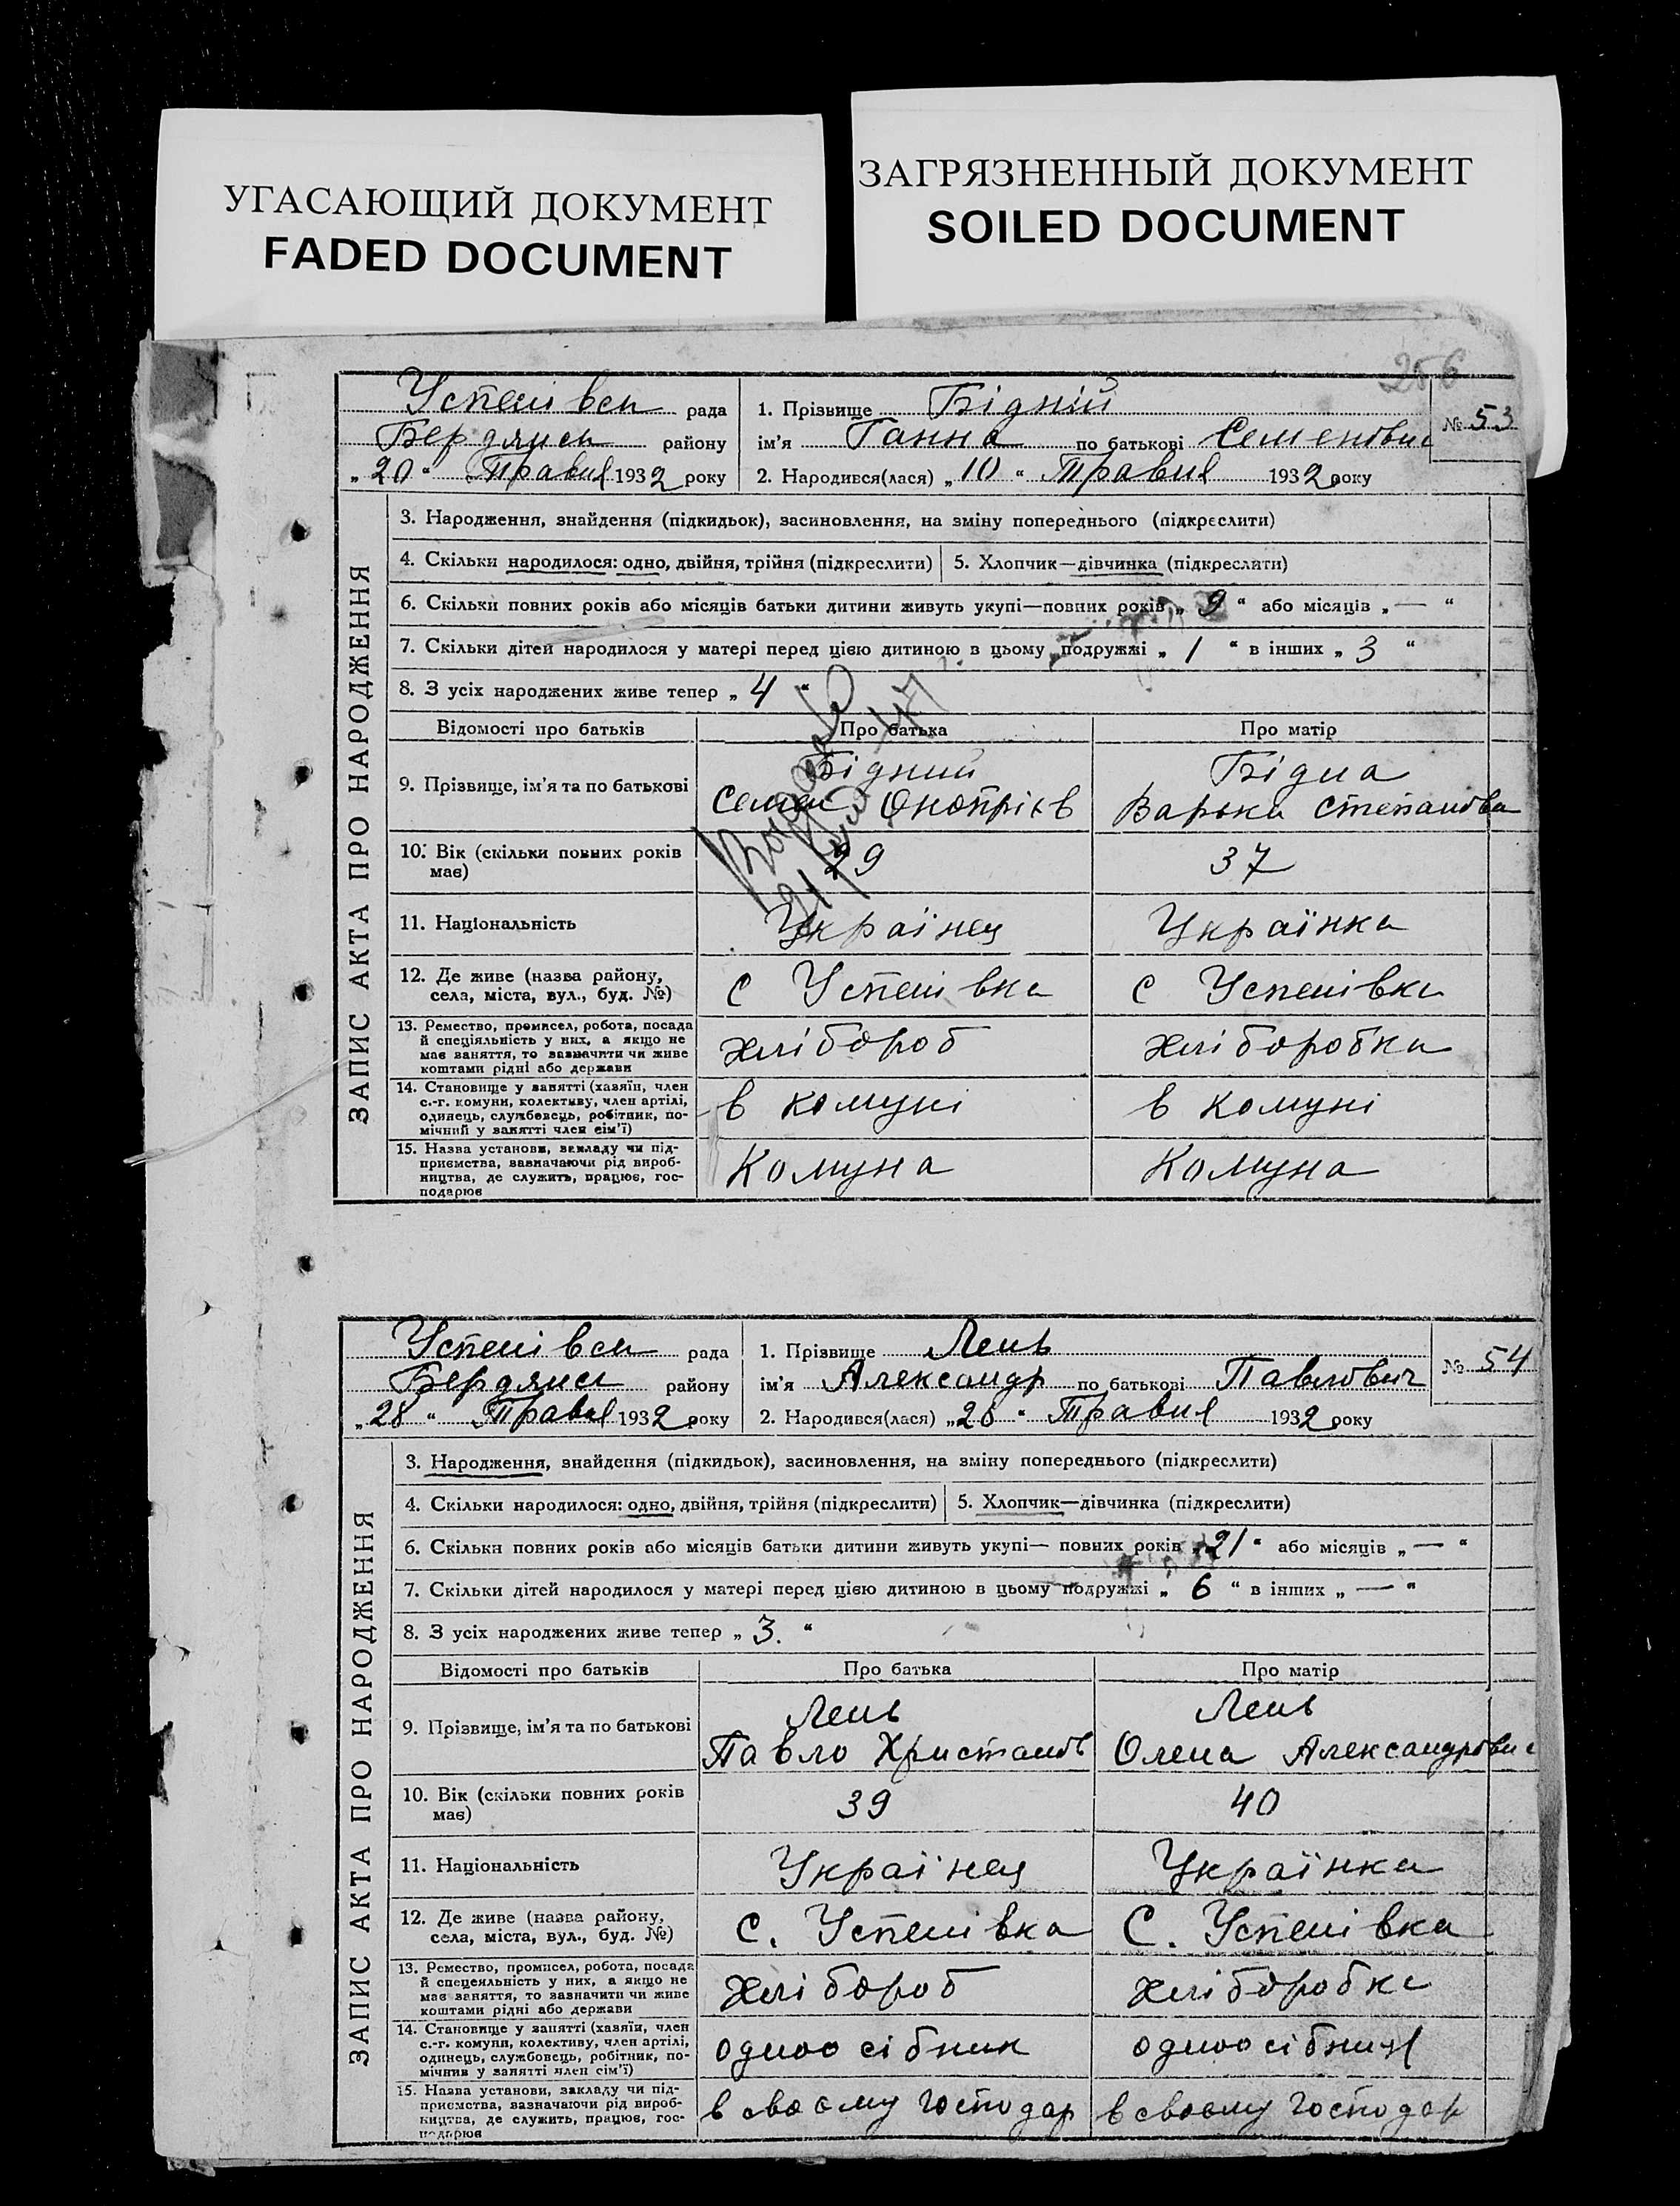 УГАСАЮЩИЙ ДОКУМЕНТ
FADED DOCUMENT
ЗАГРЯЗНЕННЫЙ ДОКУМЕНТ
SOILED DOCUMENT
256
ЗАПИС АКТА ПРО НАРОДЖЕННЯ
Успенівськ рада
Бердянськ району
„20“ Травня 1932 року
1. Прізвище Бідній
ім'я Ганна по батькові Семеновна
2. Народився(лася) „10“ Травня 1932 року
№ 53
3. Народження, знайдення (підкидьок), засиновлення, на зміну попереднього (підкреслити)
4. Скільки народилося: одно, двійня, трійня (підкреслити) 5. Хлопчик—дівчинка (підкреслити)
6. Скільки повних років або місяців батьки дитини живуть укупі—повних років „9“ або місяців „—“
7. Скільки дітей народилося у матері перед цією дитиною в цьому подружжі „1“ в інших „3“
8. З усіх народжених живе тепер „4“
Відомості про батьків Про батька Про матір
9. Прізвище, ім'я та по батькові
Бідний
Семен Онопріїв
Бідна
Варька Степановна
10. Вік (скільки повних років
має)
29
37
11. Національність
Українец
Українка
12. Де живе (назва району,
села, міста, вул., буд. №)
с Успенівка
с Успенівка
13. Ремество, промисел, робота, посада
й спеціяльність у них, а якщо не
має заняття, то зазначити чи живе
коштами рідні або держави
хлібороб
хліборобка
14. Становище у занятті (хазяїн, член
с.-г. комуни, колективу, член артілі,
одинець, службовець, робітник, по-
мічний у занятті член сім'ї)
в комуні
в комуні
15. Назва установи, закладу чи під-
приємства, зазначаючи рід вироб-
ництва, де служить, працює, гос-
подарює
Комуна
Комуна
ЗАПИС АКТА ПРО НАРОДЖЕННЯ
Успенівськ рада
Бердянськ району
„28“ Травня 1932 року
1. Прізвище Лень
ім'я Александр по батькові Павлович
2. Народився(лася) „28“ Травня 1932 року
№ 54
3. Народження, знайдення (підкидьок), засиновлення, на зміну попереднього (підкреслити)
4. Скільки народилося: одно, двійня, трійня (підкреслити) 5. Хлопчик—дівчинка (підкреслити)
6. Скільки повних років або місяців батьки дитини живуть укупі— повних років „21“ або місяців „—“
7. Скільки дітей народилося у матері перед цією дитиною в цьому подружжі „6“ в інших „—“
8. З усіх народжених живе тепер „3.“
Відомості про батьків Про батька Про матір
9. Прізвище, ім'я та по батькові
Лень
Павло Христанов
Лень
Олена Александровна
10. Вік (скільки повних років
має)
39
40
11. Національність
Українец
Українка
12. Де живе (назва району,
села, міста, вул., буд. №)
С. Успенівка
С. Успенівка
13. Ремество, промисел, робота, посада
й спецеяльність у них, а якщо не
має заняття, то зазначити чи живе
коштами рідні або держави
хлібороб
хліборобка
14. Становище у занятті (хазяїн, член
с.-г. комуни, колективу, член артілі,
одинець, службовець, робітник, по-
мічний у занятті член сім'ї)
одноосібник
одноосібниця
15. Назва установи, закладу чи під-
приємства, зазначаючи рід вироб-
ництва, де служить, працює, гос-
подарює
в своєму господар
в своєму господар